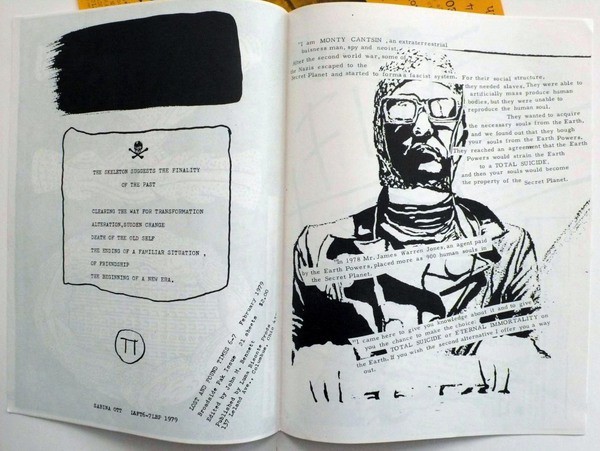 THE SKELETON SUGGESTS THE FINALITY
OF THE PAST
CLEARING THE WAY FOR TRANSFORMATION
ALTERATION, SUDDEN CHANGE
DEATH OF THE OLD SELF
THE ENDING OF A FAMILIAR SITUATION ,
OF FRIENDSHIP
THE BEGINNING OF A NEW ERA.
SABINA OTT
1979
LOST AND FOUND TIMES 6-7 February 1979
Broadside Pak Issue 21 sheets $2.00
Edited by John M. Bennett
Published by Luna Bisonte Prods
137 Leland Ave., Columbus,
"I am MONTY CANTSIN ,an extraterrestrial
buisness man, spy and neoist.
After the second world war, some of
the Nazis escaped to the
Secret Planet and started to form a fascist system. For their social structure,
they needed slaves, They were able to
artificially mass produce human
bodies, but they were unable to
reproduce the human soul.
They wanted to acquire
the necessary souls from the Earth,
and we found out that they bough
your souls from the Earth Powers.
They reached an agreement that the Earth
Powers would strain the Earth
to a TOTAL SUICIDE,
and then your souls would become
the property of the Secret Planet.
In 1978 Mr. James Warren Jones, an agent paid
by the Earth Powers, placed more as 900 human souls in
the Secret Planet.
"I came here to give you knowledge about it and to give
you the chance to make the choice:
TOTAL SUICIDE or ETERNAL IMMORTALITY on
the Earth. If you wish the second alternative I offer you a way
out.